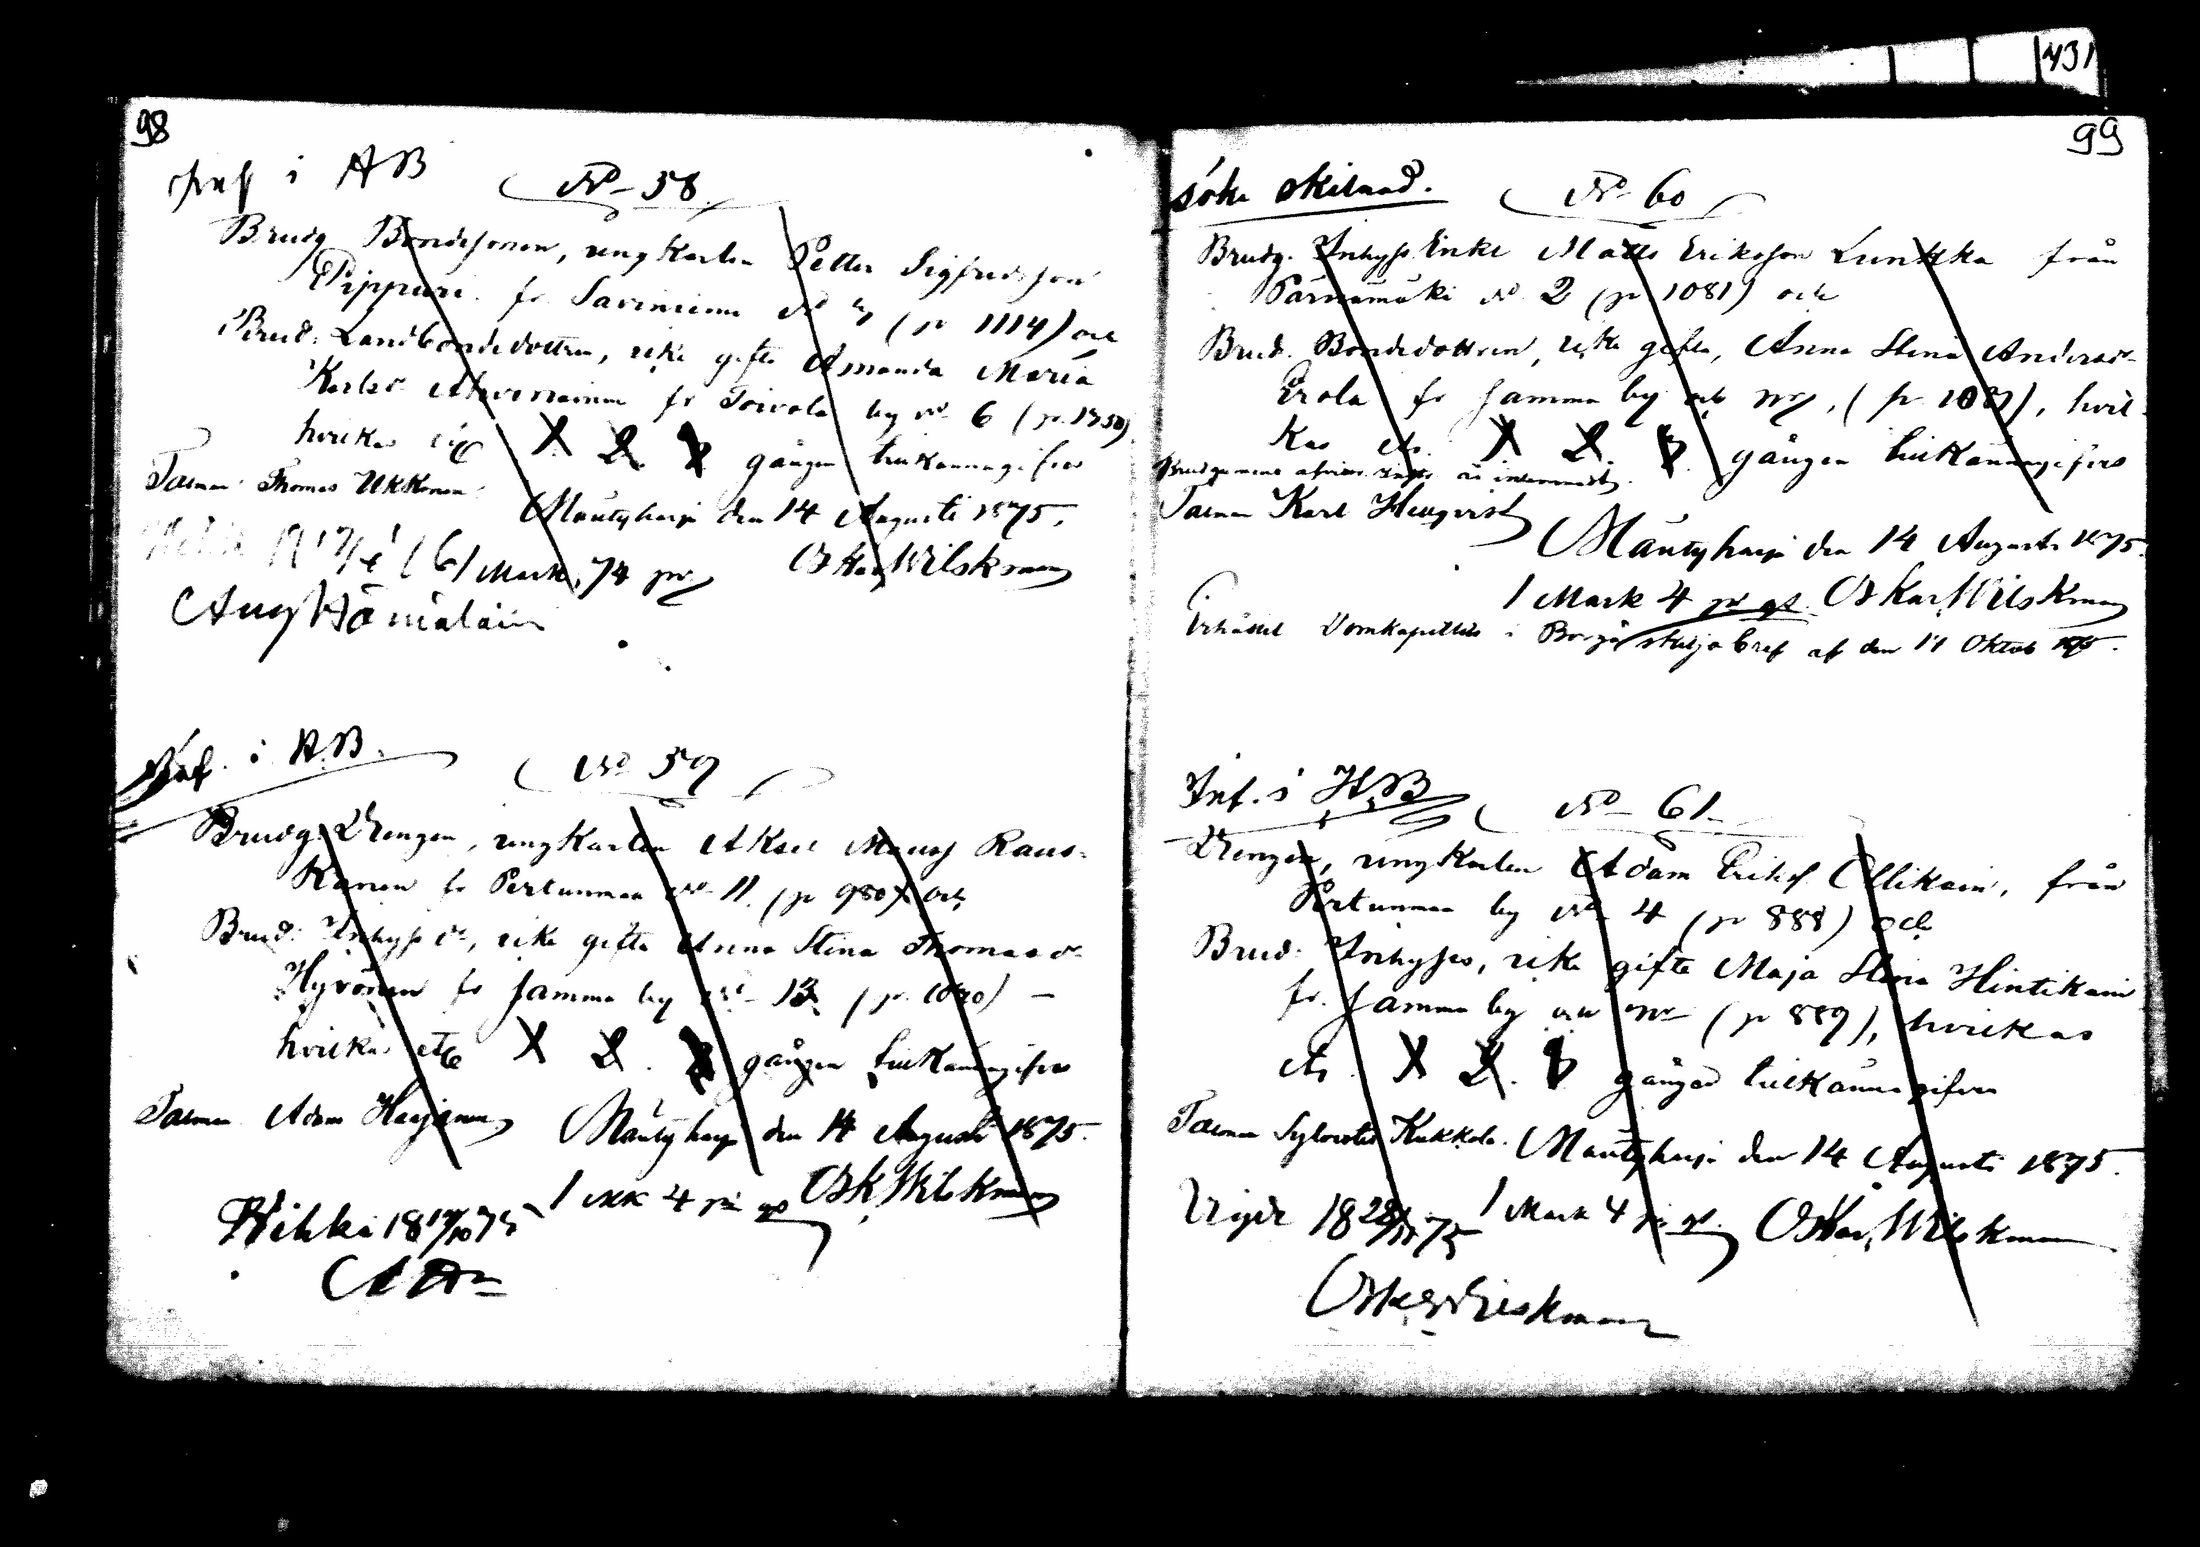 431
98
Inf i AB
No 58
Brudg Bondesonen, ungkarlen Petter Sigfridsson
Pippuri fr Saviniemi No (p 1114) och
Brud. Landbondedottren, icke gifta Amanda Maria
Karlsd. fr Toivola by No 6 (p. 1350)
hvilka etc 1. 2. 3 gången tillkännagifves
Talman Thomas Ukkonen
Mäntyharju den 14 Augusti 1875.
1 Mark, 74 pi Oskar Wilskman
Aug Hämäläin
Inf. i AB.
No 59
Brudg. Drengen, ungkarlen Aksel Mauns Raus-
kanen fr Pertunmaa No 11 (p 980) och
Brud. Inhyss dr, icke gifta Anna Stina Thomasdr
Hyvönen fr samma by No 13 (p. 1020) —
hvilka etc 1 2. 3 gången tillkännagifves
Talman Adam Harjunen Mäntyharju den 14 Augusti 1875.
1 mk 4 pi gt Osk. Wilskman
Wihki 18 17/10 75
99
söka skilnad.
No 60
Brudg. Inhyss Enkl Matts Eriksson Lunkka från
Pärnämäki No 2 (p 1081) och
Brud. Bondedottren, icke gifta, Anna Stina Andersdr
Erola fr samma by och No, (p 1087), hvil-
kas etc. 1 2. 3. gången tillkännagifves
Brudgummens är inlemnadt.
Talman Karl Hengvist
Mäntyharju den 14 Augusti 1875.
1 Mark 4 pi gt. Oskar Wilskman
Erhållit Domkapitlets i Borgå skiljobref af den 14 Oktob 1875.
Inf. i HB
No 61
Drengen, ungkarlen Adam Eriks. Ollikain, från
Pertunmaa by No 4 (p 888) och
Brud. Inhyses, icke gifta Maja Stina Hintikain
fr. samma by och No (p 889), hvilkas
etc. 1 2. 3 gången tillkännagifves
Talman Sylvester Kukkola. Mäntyharju den 14 Augusti 1875.
Vigde 18 28/11 75 1 Mark 4 pi gt. Oskar Wilskman
Oskar Wilskman